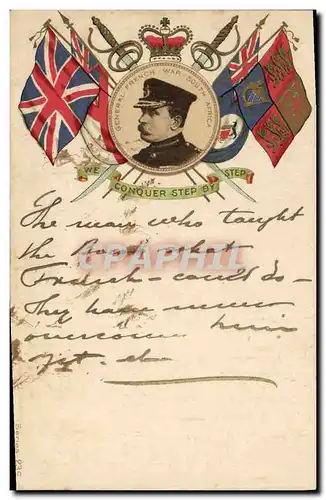 GENERAL FRENCH · WAR · SOUTH AFRICA
WE CONQUER STEP BY STEP
The man who taught
the Boers what
French - could do -
They have never
overcome him
yet - eh
CPRPHIL
Series 239